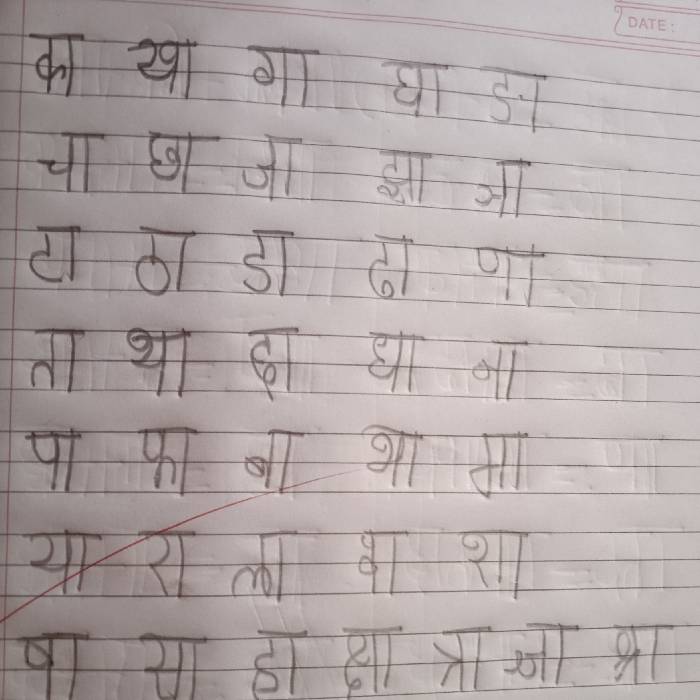 DATE :
का खा गा घा ङा
चा छा जा झा ञा
टा ठा डा ढा णा
ता था दा धा ना
पा फा बा भा मा
या रा ला वा शा
षा सा हा क्षा त्रा ज्ञा श्रा